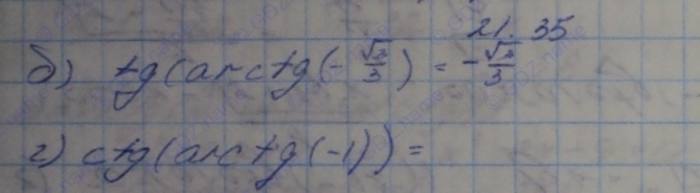 21. 35
б) tg(arctg(-√3/3) = -√3/3
г) ctg(arctg(-1)) =